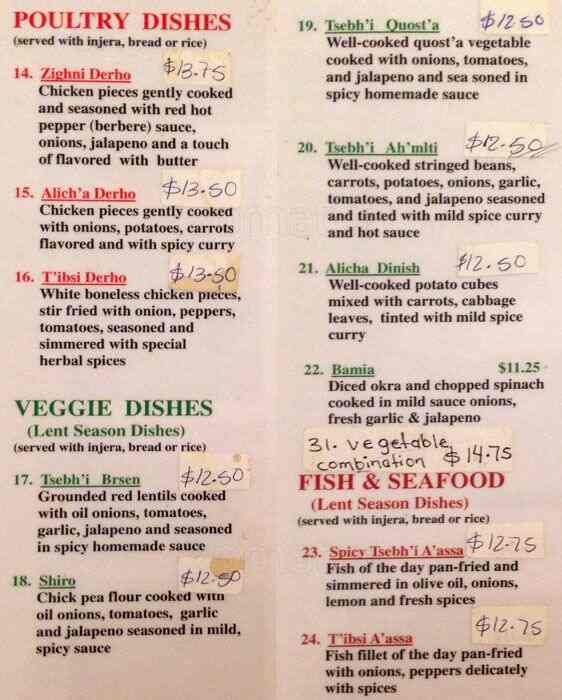 POULTRY DISHES
(served with injera, bread or rice)
14. Zighni Derho $13.75
Chicken pieces gently cooked
and seasoned with red hot
pepper (berbere) sauce,
onions, jalapeno and a touch
of flavored with butter
15. Alich'a Derho $13.50
Chicken pieces gently cooked
with onions, potatoes, carrots
flavored and with spicy curry
16. T'ibsi Derho $13.50
White boneless chicken pieces,
stir fried with onion, peppers,
tomatoes, seasoned and
simmered with special
herbal spices
VEGGIE DISHES
(Lent Season Dishes)
(served with injera, bread or rice)
17. Tsebh'i Brsen $12.50
Grounded red lentils cooked
with oil onions, tomatoes,
garlic, jalapeno and seasoned
in spicy homemade sauce
18. Shiro $12.50
Chick pea flour cooked with
oil onions, tomatoes, garlic
and jalapeno seasoned in mild,
spicy sauce
19. Tsebh'i Quost'a $12.50
Well-cooked quost'a vegetable
cooked with onions, tomatoes,
and jalapeno and sea soned in
spicy homemade sauce
20. Tsebh'i Ah'mlti $12.50
Well-cooked stringed beans,
carrots, potatoes, onions, garlic,
tomatoes, and jalapeno seasoned
and tinted with mild spice curry
and hot sauce
21. Alicha Dinish $12.50
Well-cooked potato cubes
mixed with carrots, cabbage
leaves, tinted with mild spice
curry
22. Bamia $11.25
Diced okra and chopped spinach
cooked in mild sauce onions,
fresh garlic & jalapeno
31. vegetable
combination $14.75
FISH & SEAFOOD
(Lent Season Dishes)
(served with injera, bread or rice)
23. Spicy Tsebh'i A'assa $12.75
Fish of the day pan-fried and
simmered in olive oil, onions,
lemon and fresh spices
24. T'ibsi A'assa $12.75
Fish fillet of the day pan-fried
with onions, peppers delicately
with spices